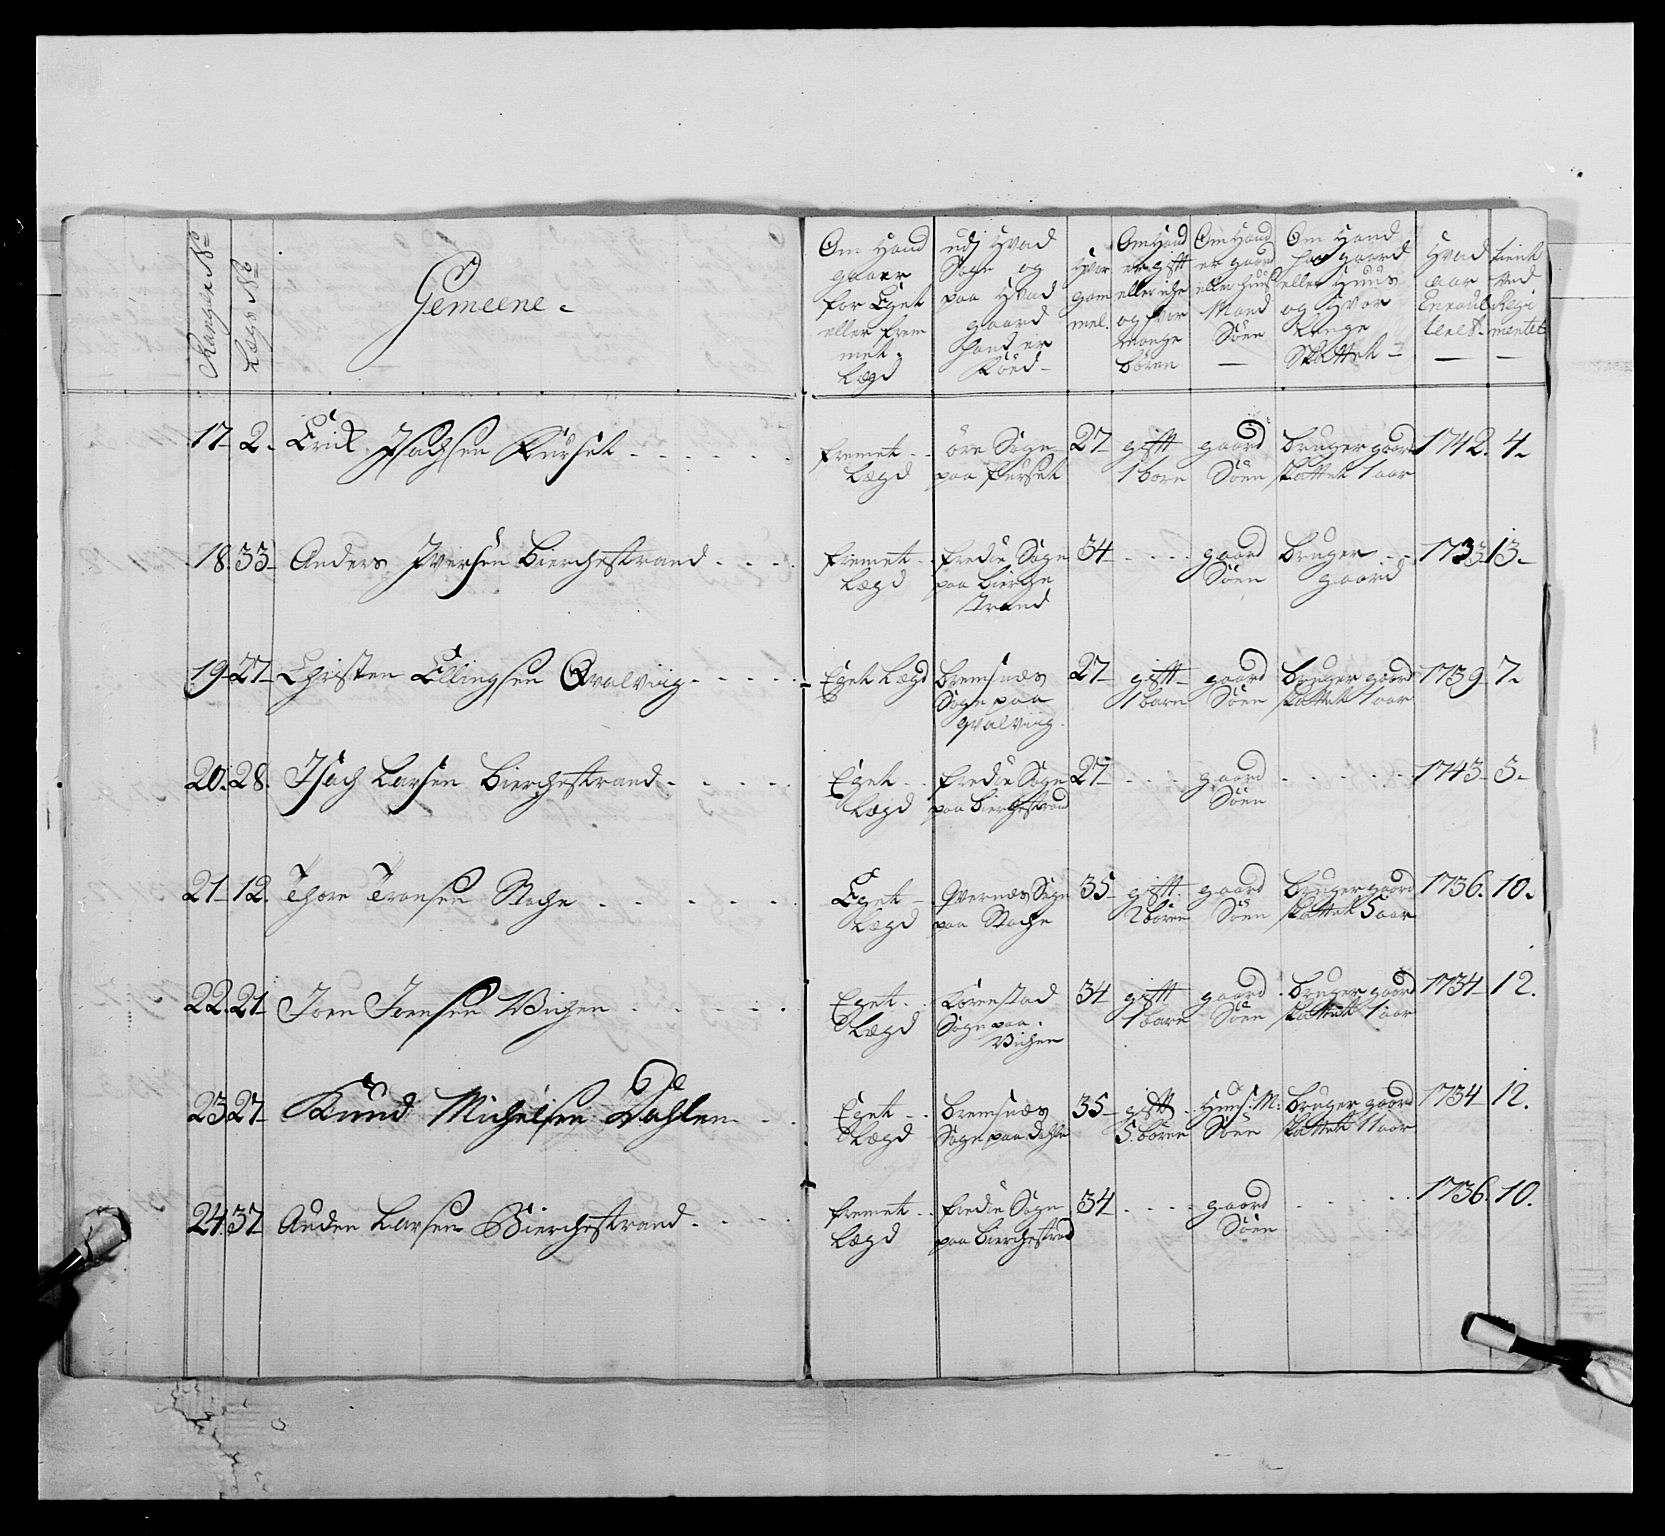 Rangee No
Lægs No
Gemeene.
Om Hand gaaer for Eget eller frem met Lægd
udj Hvad Sogn og paa Hvad gaard hand er Föed
Hvor gam mel.
Om Hand er gift eller icke og hvor mange börn
Om Hand er gaard eller Huus Mand Söen
Om Hand har gaard eller Huus og Hvor Længe Skattet
Hvad aar Enroul leret.
tient ved Regi mentet
17 2. Erick Jsachsen Furset fremet Lægd öre Sogn paa furset 27 gift 1 barn gaard Söen bruger gaard skattet 1 aar 1742. 4
18. 33 Anders Jversen Bierchestrand fremet Lægd fredöe Sogn paa bierche strand 34 gaard Söen bruger gaard 1733 13
19 27 Christen Ellingsen Qvalviig Eget Lægd bremsnæs Sogn paa qvalviig 27 gift 1 barn gaard Söen bruger gaard skattet 1 aar 1739 7
20. 28. Jsach Larsen Bierchestrand Eget Lægd fredöe Sogn paa bierchestrand 27 gaard Söen 1743 3
21 12. Thore Tronsen Stache Eget Lægd qvernæs Sogn paa Stache 35 gift 2 börn gaard Söen bruger gaard skattet 5 aar 1736. 10.
22. 21 Joen Joensen Vichen Eget Lægd Körnstad Sogn paa Vichen 34 gift 1 barn gaard Söen bruger gaard skattet 1 aar 1734 12.
23 27 Knud Michelsen Dahlen Eget Lægd bremsnæs Sogn paa dahle 35 gift 5 börn Huus: M: Söen bruger gaard skattet 11 aar 1734 12.
24. 37 Auden Larsen Bierchestrand fremet Lægd fredöe Sogn paa bierchestrad 34 gaard Söen 1736. 10.